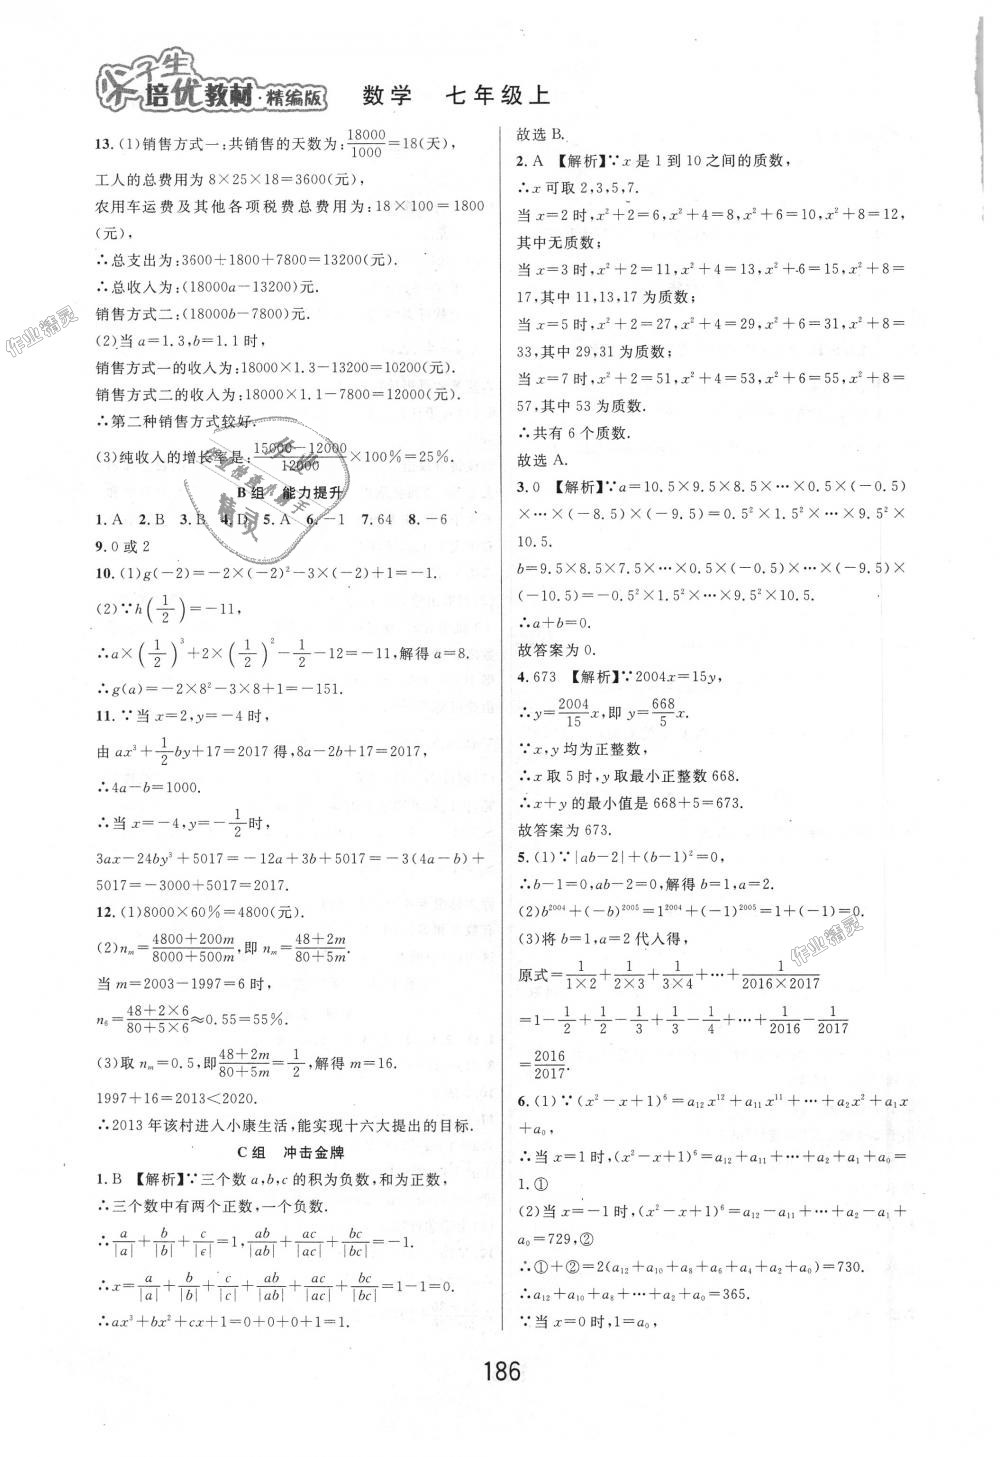 尖子生
培优教材·精编版 数学 七年级上
13.(1)销售方式一:共销售的天数为:18000/1000=18(天),
工人的总费用为8×25×18=3600(元),
农用车运费及其他各项税费总费用为:18×100=1800
(元),
∴总支出为:3600+1800+7800=13200(元).
∴总收入为:(18000a-13200)元.
销售方式二:(18000b-7800)元.
(2)当a=1.3,b=1.1时,
销售方式一的收入为:18000×1.3-13200=10200(元).
销售方式二的收入为:18000×1.1-7800=12000(元).
∴第二种销售方式较好.
(3)纯收入的增长率是:(15000-12000)/12000×100%=25%.
B组 能力提升
1.A 2.B 3.B 4.D 5.A 6.-1 7.64 8.-6
9.0或2
10.(1)g(-2)=-2×(-2)²-3×(-2)+1=-1.
(2)∵h(1/2)=-11,
∴a×(1/2)³+2×(1/2)²-1/2-12=-11,解得a=8.
∴g(a)=-2×8²-3×8+1=-151.
11.∵当x=2,y=-4时,
由ax³+1/2by+17=2017得,8a-2b+17=2017,
∴4a-b=1000.
∴当x=-4,y=-1/2时,
3ax-24by³+5017=-12a+3b+5017=-3(4a-b)+
5017=-3000+5017=2017.
12.(1)8000×60%=4800(元).
(2)nₘ=(4800+200m)/(8000+500m),即nₘ=(48+2m)/(80+5m).
当m=2003-1997=6时,
n₆=(48+2×6)/(80+5×6)≈0.55=55%.
(3)取nₘ=0.5,即(48+2m)/(80+5m)=1/2,解得m=16.
1997+16=2013<2020.
∴2013年该村进入小康生活,能实现十六大提出的目标.
C组 冲击金牌
1.B 【解析】∵三个数a,b,c的积为负数,和为正数,
∴三个数中有两个正数,一个负数.
∴a/|a|+b/|b|+c/|c|=1,ab/|ab|+ac/|ac|+bc/|bc|=-1.
∴x=a/|a|+b/|b|+c/|c|+ab/|ab|+ac/|ac|+bc/|bc|=1-1=0.
∴ax³+bx²+cx+1=0+0+0+1=1.
故选B.
2.A 【解析】∵x是1到10之间的质数,
∴x可取2,3,5,7.
当x=2时,x²+2=6,x²+4=8,x²+6=10,x²+8=12,
其中无质数;
当x=3时,x²+2=11,x²+4=13,x²+6=15,x²+8=
17,其中11,13,17为质数;
当x=5时,x²+2=27,x²+4=29,x²+6=31,x²+8=
33,其中29,31为质数;
当x=7时,x²+2=51,x²+4=53,x²+6=55,x²+8=
57,其中53为质数.
∴共有6个质数.
故选A.
3.0 【解析】∵a=10.5×9.5×8.5×…×0.5×(-0.5)
×…×(-8.5)×(-9.5)=0.5²×1.5²×…×9.5²×
10.5.
b=9.5×8.5×7.5×…×0.5×(-0.5)×…×(-9.5)×
(-10.5)=-0.5²×1.5²×…×9.5²×10.5.
∴a+b=0.
故答案为0.
4.673 【解析】∵2004x=15y,
∴y=2004/15x,即y=668/5x.
∵x,y均为正整数,
∴x取5时,y取最小正整数668.
∴x+y的最小值是668+5=673.
故答案为673.
5.(1)∵|ab-2|+(b-1)²=0,
∴b-1=0,ab-2=0,解得b=1,a=2.
(2)b²⁰⁰⁴+(-b)²⁰⁰⁵=1²⁰⁰⁴+(-1)²⁰⁰⁵=1+(-1)=0.
(3)将b=1,a=2代入得,
原式=1/(1×2)+1/(2×3)+1/(3×4)+…+1/(2016×2017)
=1-1/2+1/2-1/3+1/3-1/4+…+1/2016-1/2017
=2016/2017.
6.(1)∵(x²-x+1)⁶=a₁₂x¹²+a₁₁x¹¹+…+a₂x²+a₁x
+a₀,
∴当x=1时,(x²-x+1)⁶=a₁₂+a₁₁+…+a₂+a₁+a₀=
1.①
(2)当x=-1时,(x²-x+1)⁶=a₁₂-a₁₁+…+a₂-a₁+
a₀=729,②
∴①+②=2(a₁₂+a₁₀+a₈+…+a₂+a₀)=730.
∴a₁₂+a₁₀+a₈+…+a₂+a₀=365.
∵当x=0时,1=a₀,
186
作业精灵
作业精灵
作业检查小助手
作业
精灵